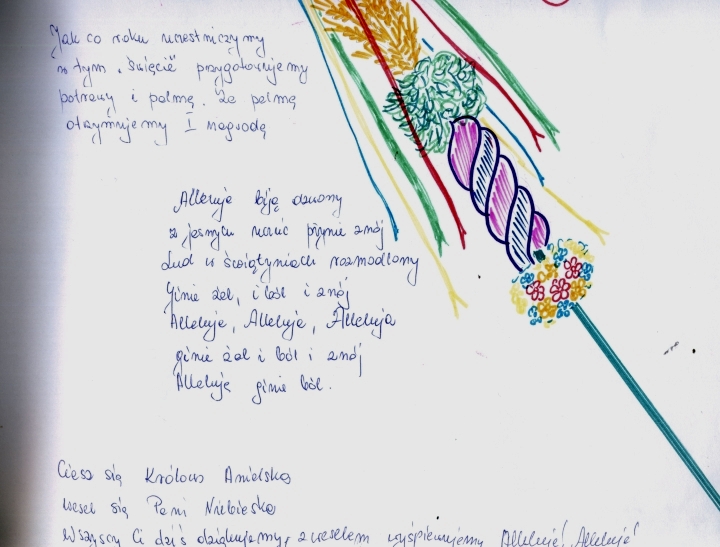 Jak co roku uczestniczymy
w tym "święcie" przygotowujemy
potrawy i palmę. Za palmę
otrzymujemy I nagrodę
Alleluja biją dzwony
z jasnych płynie znój
Lud w świątyniach rozmodlony
Ginie żal, i ból i znój
Alleluja, Alleluja, Alleluja
ginie żal i ból i znój
Alleluja ginie ból.
Ciesz się Królowo Anielska
wesel się Pani Niebieska
Wszyscy Ci dziś dziękujemy, z weselem wyśpiewujemy Alleluja! Alleluja!